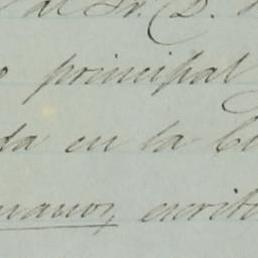 al Sr. D.
principal
da en la
manos, escrit